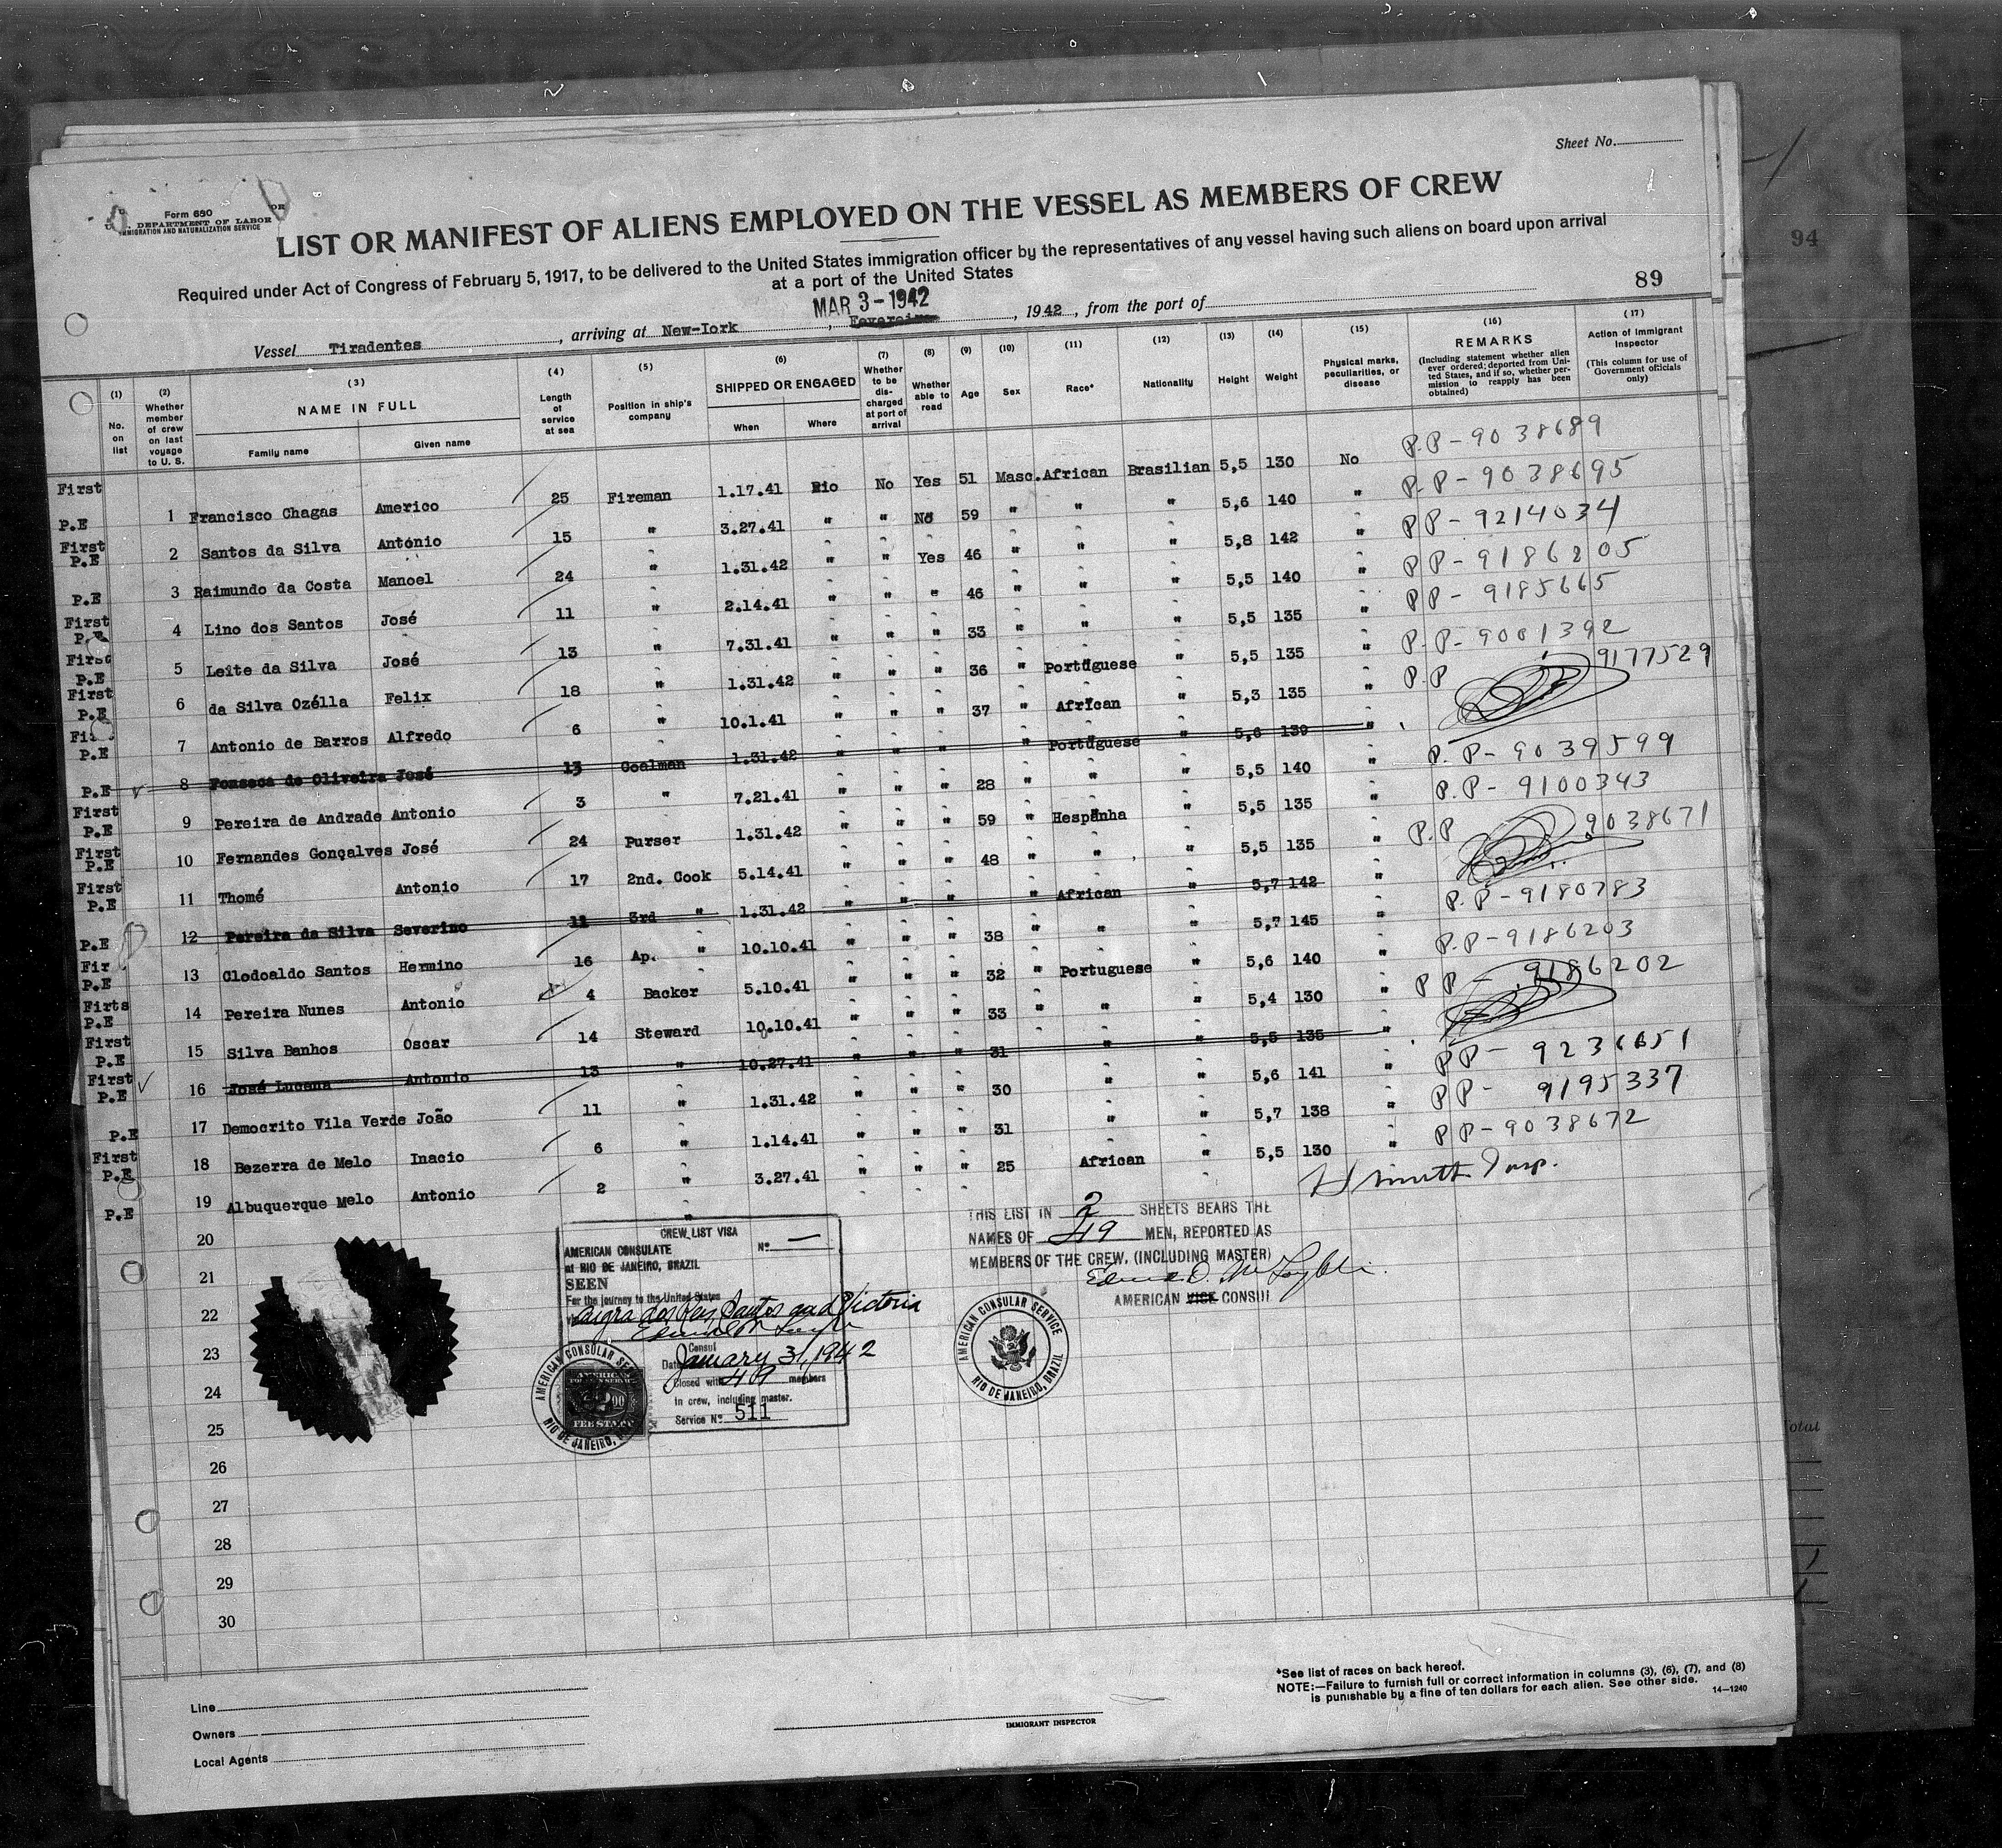 Sheet No.
Form 680
DEPARTMENT OF LABOR
IMMIGRATION AND NATURALIZATION SERVICE
LIST OR MANIFEST OF ALIENS EMPLOYED ON THE VESSEL AS MEMBERS OF CREW
Required under Act of Congress of February 5, 1917, to be delivered to the United States immigration officer by the representatives of any vessel having such aliens on board upon arrival
at a port of the United States
94
89
MAR 3-1942
Vessel Tiradentes, arriving at New-Iork, Fevereiro, 1942, from the port of
(1) (2) (3) (4) (5) (6) (7) (8) (9) (10) (11) (12) (13) (14) (15) (16) (17)
No. on list
Whether member of crew on last voyage to U. S.
NAME IN FULL
Family name
Given name
Length of service at sea
Position in ship's company
SHIPPED OR ENGAGED
When
Where
Whether to be discharged at port of arrival
Whether able to read
Age
Sex
Race*
Nationality
Height
Weight
Physical marks, peculiarities, or disease
REMARKS
(Including statement whether alien ever ordered deported from United States, and if so, whether permission to reapply has been obtained)
Action of Immigrant Inspector
(This column for use of Government officials only)
First P.E 1 Francisco Chagas Americo 25 Fireman 1.17.41 Rio No Yes 51 Masc. African Brasilian 5,5 130 No P.P-9038689
First P.E 2 Santos da Silva António 15 " 3.27.41 " " No 59 " " " 5,6 140 " P.P-9038695
P.E 3 Raimundo da Costa Manoel 24 " 1.31.42 " " Yes 46 " " " 5,8 142 " PP-9214034
First P.E 4 Lino dos Santos José 11 " 2.14.41 " " " 46 " " " 5,5 140 " PP-9186205
First P.E 5 Leite da Silva José 13 " 7.31.41 " " " 33 " " " 5,5 135 " PP-9185665
First P.E 6 da Silva Ozélla Felix 18 " 1.31.42 " " " 36 " Portuguese " 5,5 135 " P.P-9001392
P.E 7 Antonio de Barros Alfredo 6 " 10.1.41 " " " 37 " African " 5,3 135 " P.P 9177529
P.E 8 Fonseca de Oliveira José 13 Coalman 1.31.42 " " " " Portuguese " 5,6 139 "
First P.E 9 Pereira de Andrade Antonio 3 " 7.21.41 " " " 28 " " " 5,5 140 " P.P-9039599
First P.E 10 Fernandes Gonçalves José 24 Purser 1.31.42 " " " 59 " Hespanha " 5,5 135 " P.P-9100343
First P.E 11 Thomé Antonio 17 2nd. Cook 5.14.41 " " " 48 " " " 5,5 135 " P.P 9038671
P.E 12 Pereira da Silva Severino 11 3rd " 1.31.42 " " " " African " 5,7 142 "
P.E 13 Clodoaldo Santos Hermino 16 Ap. " 10.10.41 " " " 38 " " " 5,7 145 " P.P-9180783
Firts P.E 14 Pereira Nunes Antonio 4 Backer 5.10.41 " " " 32 " Portuguese " 5,6 140 " P.P-9186203
First P.E 15 Silva Banhos Oscar 14 Steward 10.10.41 " " " 33 " " 5,4 130 " PP-9186202
First P.E 16 José Lucena Antonio 13 " 10.27.41 " " " 31 " 5,5 135 "
P.E 17 Democrito Vila Verde João 11 " 1.31.42 " " " 30 " " 5,6 141 " PP-9236651
First P.E 18 Bezerra de Melo Inacio 6 " 1.14.41 " " " 31 " " 5,7 138 " PP-9195337
P.E 19 Albuquerque Melo Antonio 2 " 3.27.41 " " " 25 African " 5,5 130 " PP-9038672
20
21
22
23
24
25
26
27
28
29
30
CREW LIST VISA
No. —
AMERICAN CONSULATE
at RIO DE JANEIRO, BRAZIL
SEEN
For the journey to the United States
via Angra dos Reis, Santos and Victoria
Consul
Date January 31, 1942
Closed with 49 members
in crew, including master.
Service No. 511
AMERICAN CONSULAR SERVICE
RIO DE JANEIRO, BRAZIL
THIS LIST IN 2 SHEETS BEARS THE
NAMES OF 49 MEN, REPORTED AS
MEMBERS OF THE CREW, (INCLUDING MASTER)
AMERICAN VICE CONSUL
AMERICAN CONSULAR SERVICE
RIO DE JANEIRO, BRAZIL
Total
Line
Owners
Local Agents
IMMIGRANT INSPECTOR
*See list of races on back hereof.
NOTE:—Failure to furnish full or correct information in columns (3), (6), (7), and (8)
is punishable by a fine of ten dollars for each alien. See other side.
14—1240